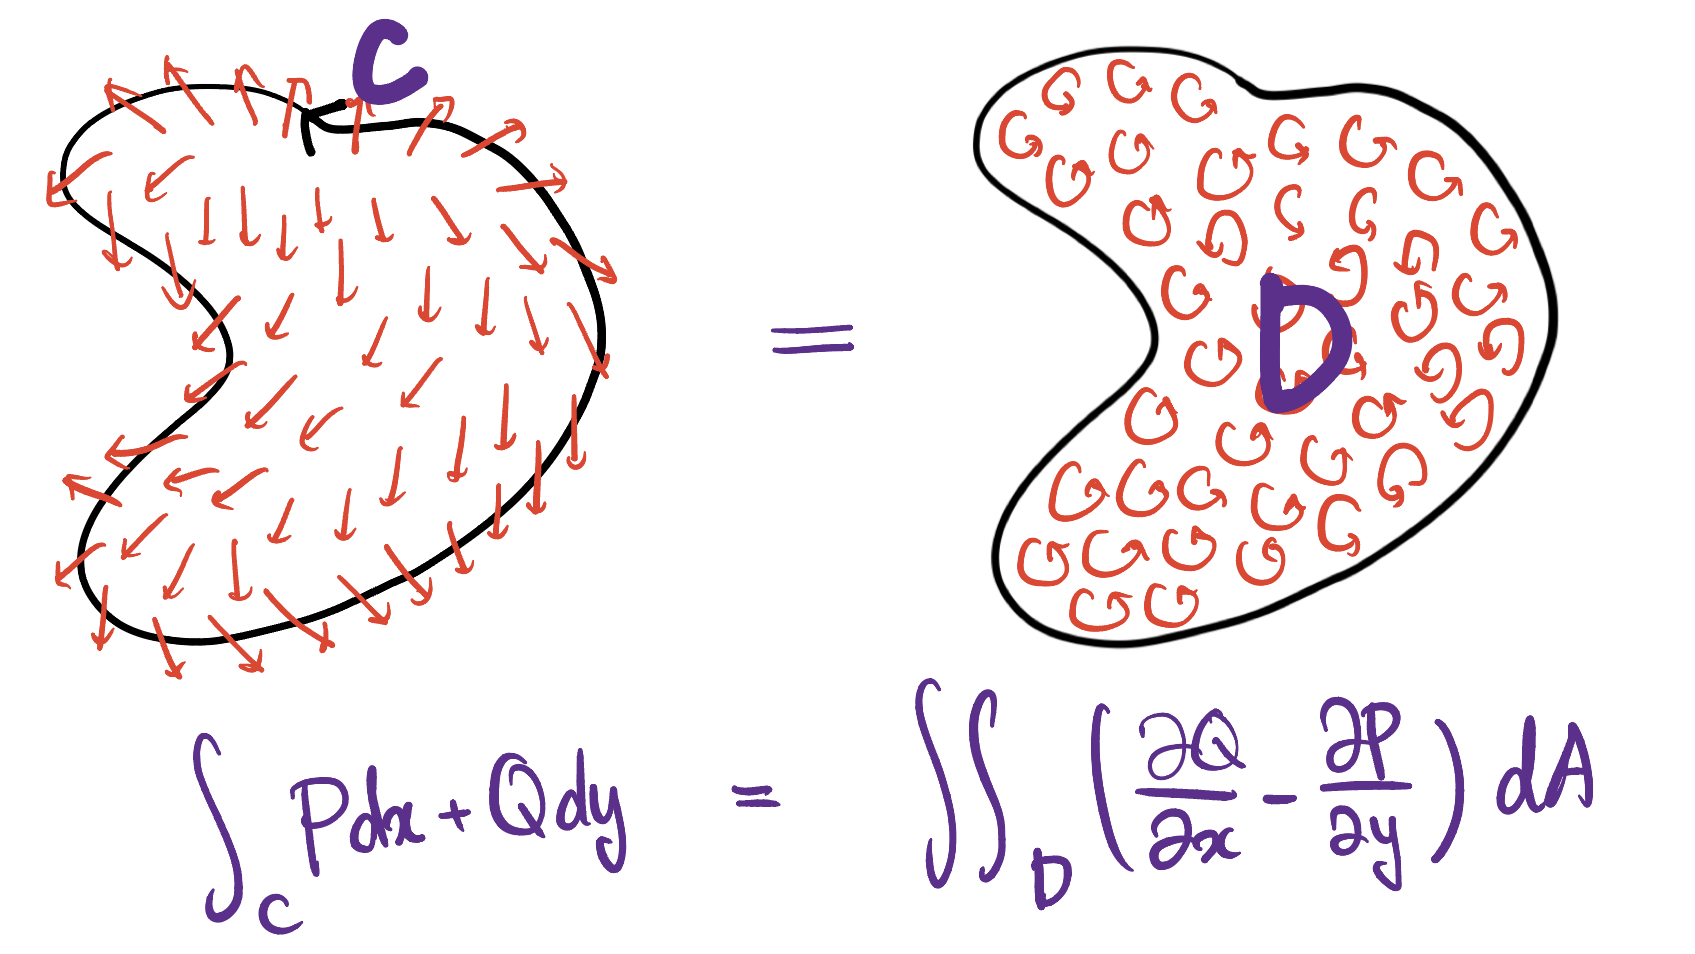 C
=
D
∫_C Pdx + Qdy = ∬_D (∂Q/∂x − ∂P/∂y) dA